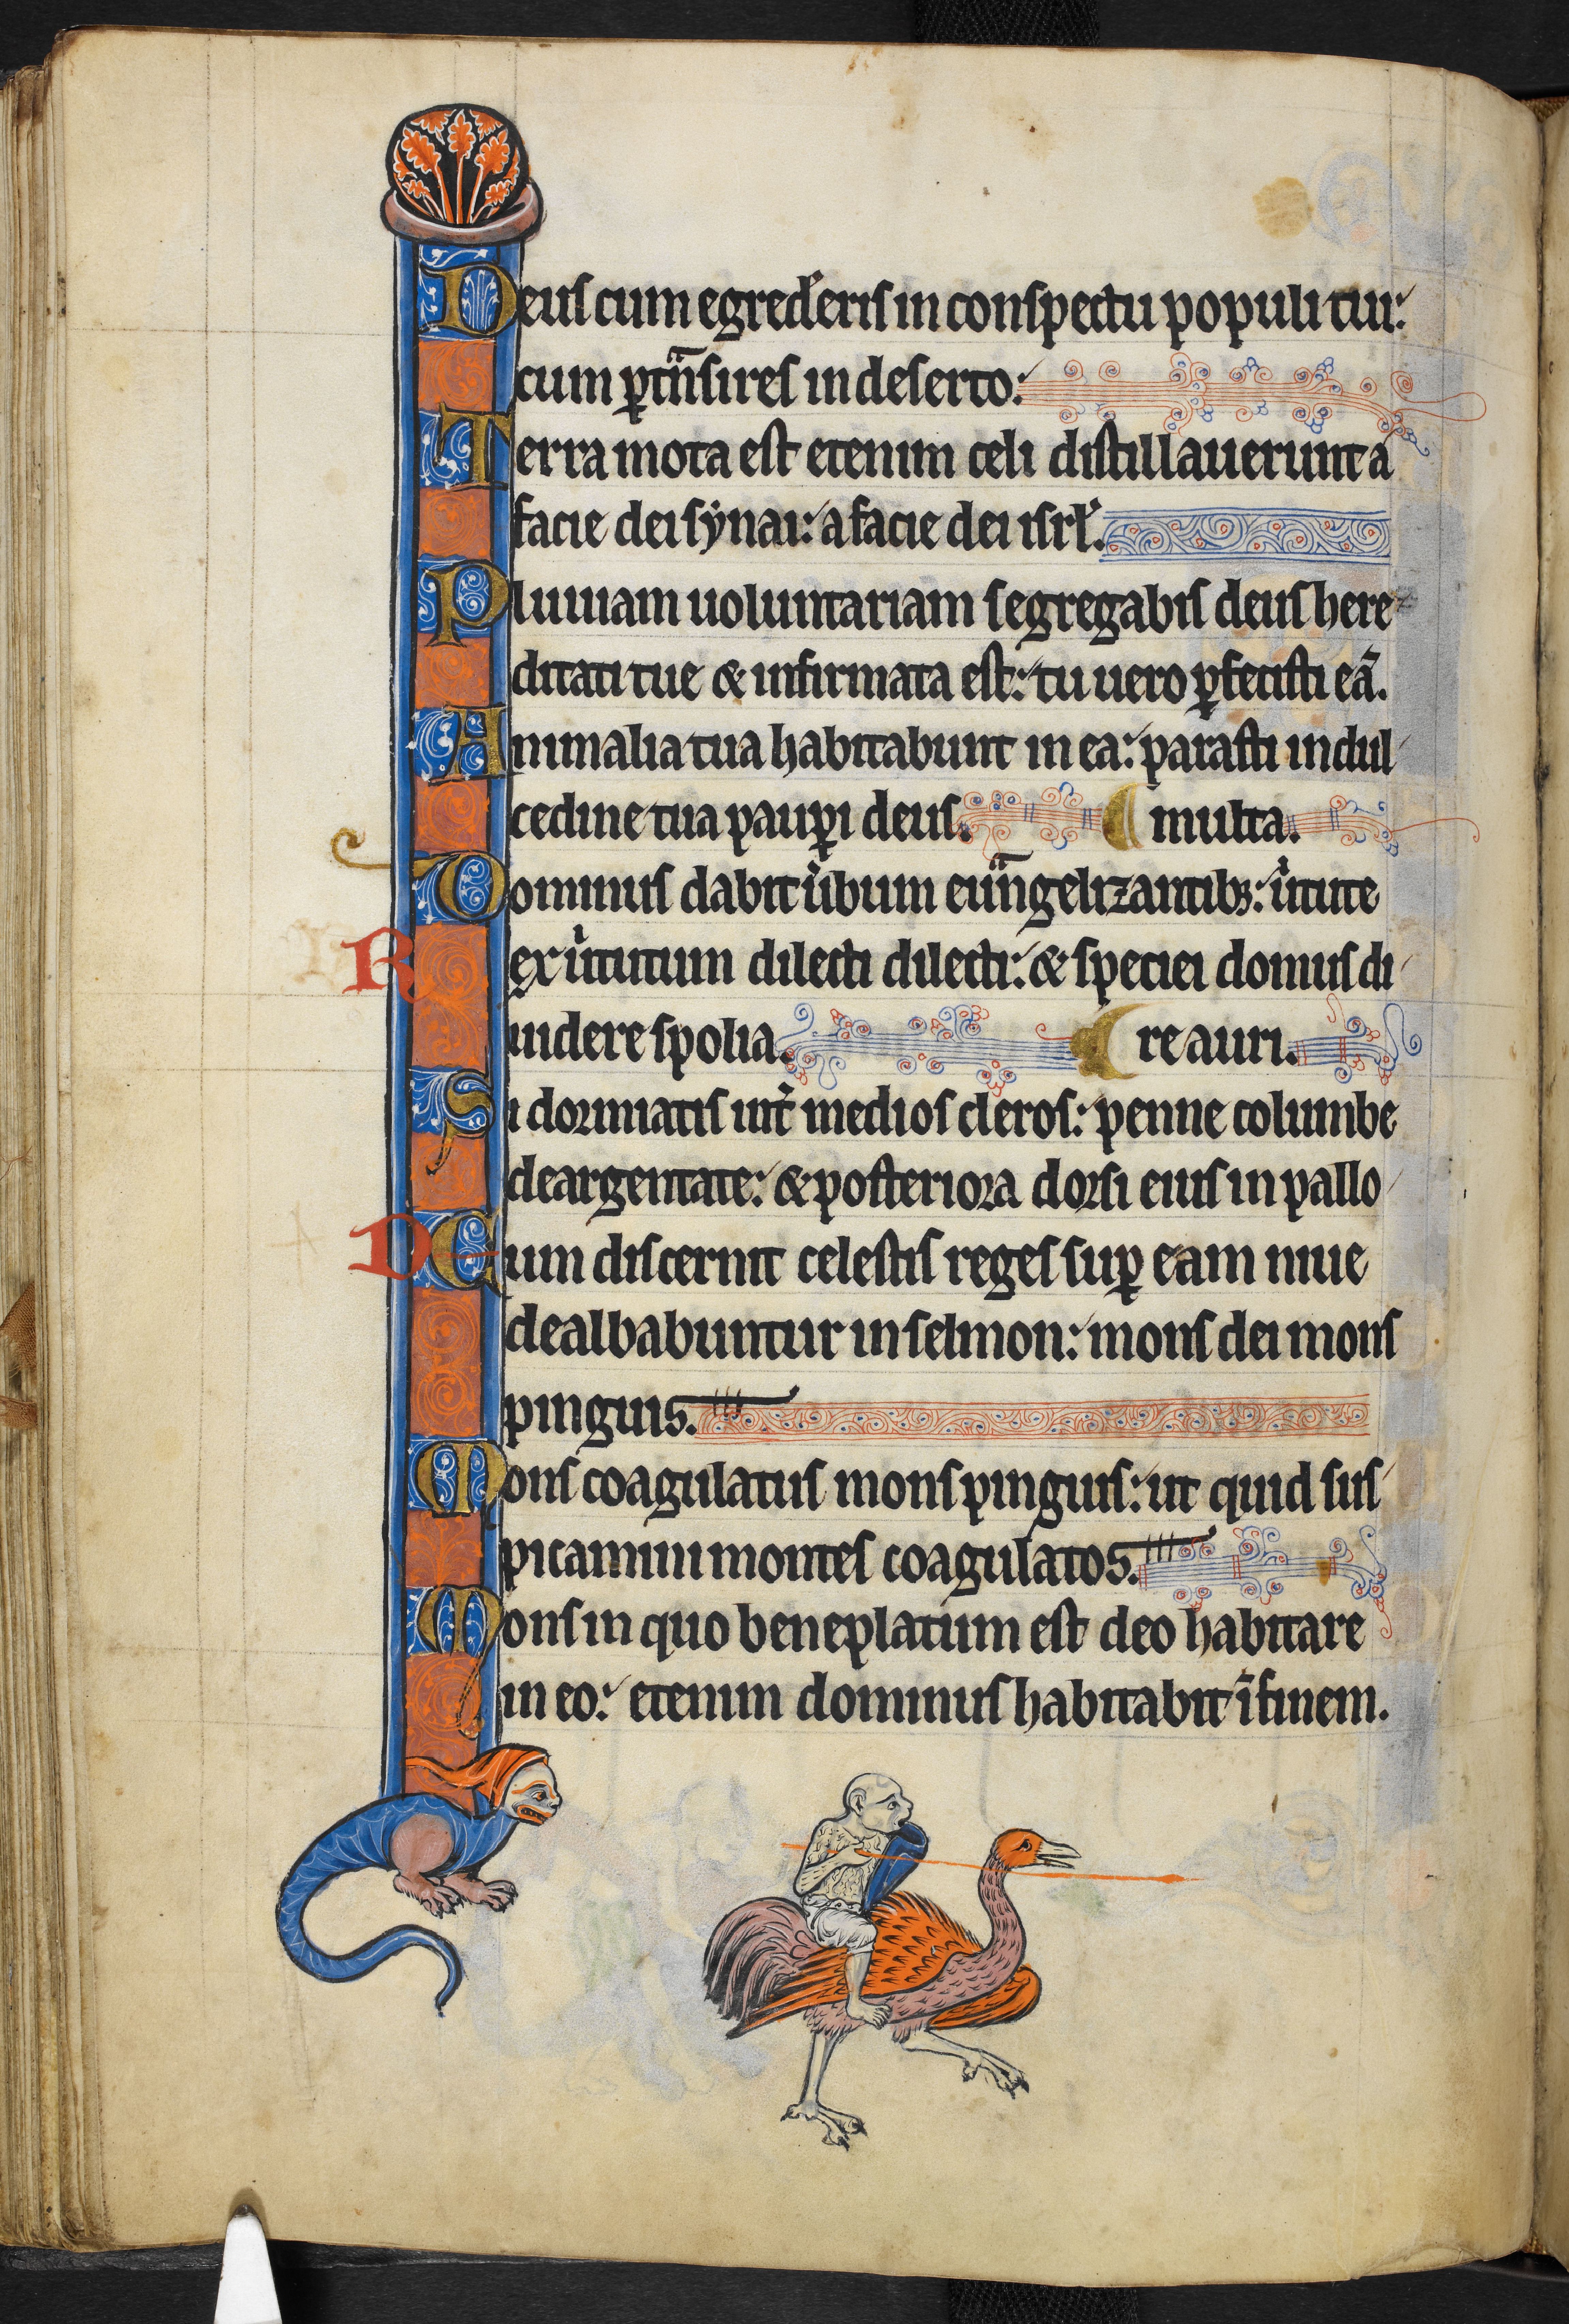 Deus cum egred'eris in conspectu populi tui:
cum ꝑtn̄sires in deserto:
Terra mota est etenim celi distillauerunt a
facie dei synai: a facie dei isrl'.
Pluuiam uoluntariam segregabis deus here
ditati tue & infirmata est: tu uero ꝑfecisti eā.
Animalia tua habitabunt in ea: parasti in dul
cedine tua pauꝑi deus. multa.
Dominus dabit u'bum eun̄gelizantibꝫ: u'tute
R
ex u'tutum dilecti dilecti: & speciei domus di
uidere spolia. re auri.
Si dormiatis int' medios cleros: penne columbe
deargentate: & posteriora dorsi eius in pallo
D
Cum discernit celestis reges suꝑ eam niue
dealbabuntur in selmon: mons dei mons
pinguis.
Mons coagulatus mons pinguis: ut quid sus
picamini montes coagulatos.
Mons in quo beneplatum est deo habitare
in eo: etenim dominus habitabit ī finem.